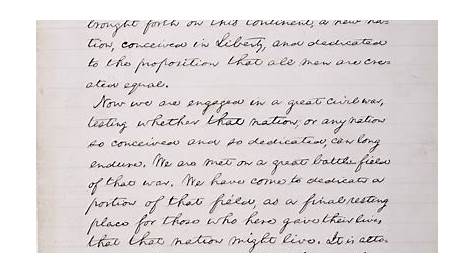 brought forth on this continent, a new na-
tion, conceived in Liberty, and dedicated
to the proposition that all men are cre-
ated equal.
Now we are engaged in a great civil war,
testing whether that nation, or any nation
so conceived and so dedicated, can long
endure. We are met on a great battle field
of that war. We have come to dedicate a
portion of that field, as a final resting
place for those who here gave their lives,
that that nation might live. It is alto-